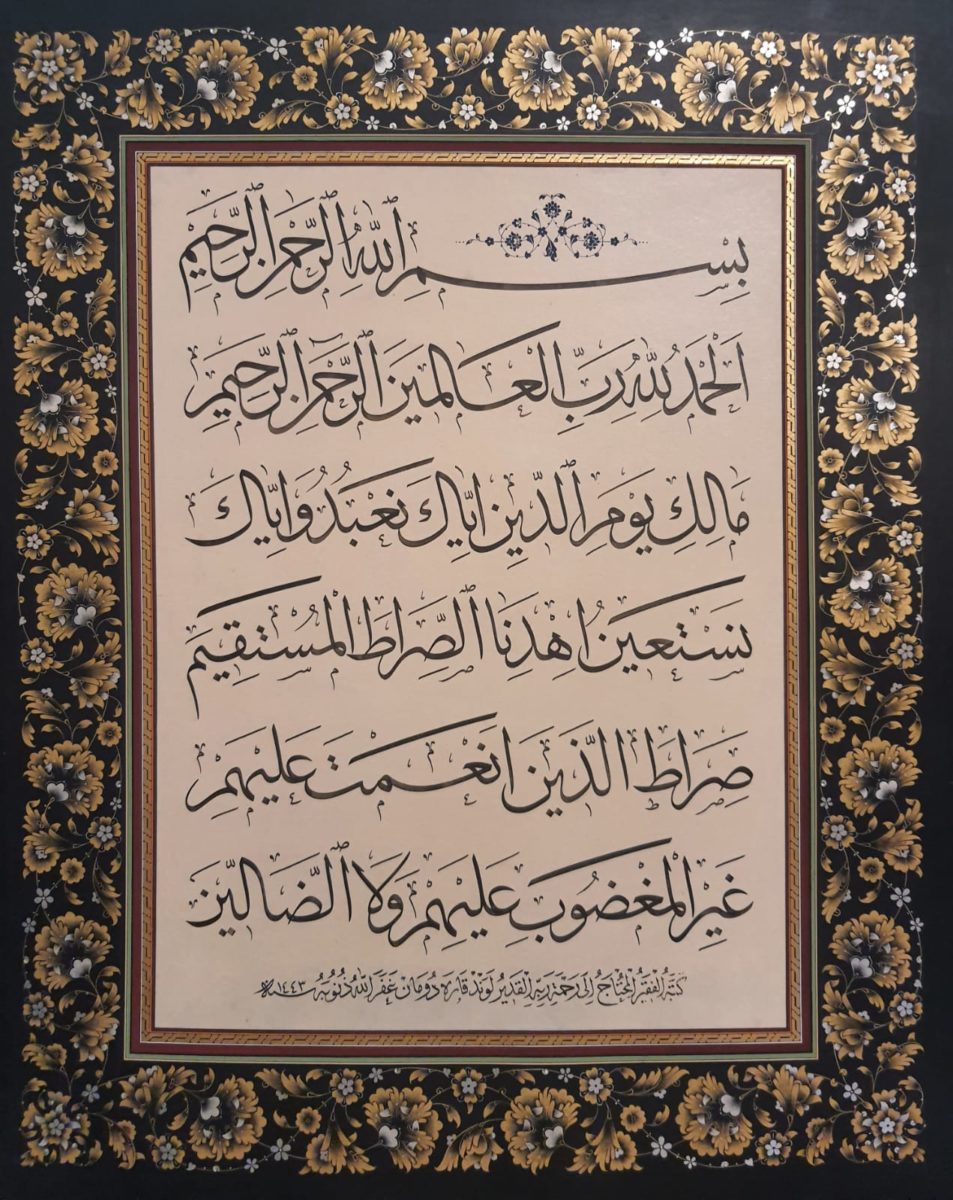 بِسْمِ اللّٰهِ الرَّحْمٰنِ الرَّحِيمِ
اَلْحَمْدُ لِلّٰهِ رَبِّ الْعَالَمِينَ الرَّحْمٰنِ الرَّحِيمِ
مَالِكِ يَوْمِ الدِّينِ اِيَّاكَ نَعْبُدُ وَاِيَّاكَ
نَسْتَعِينُ اِهْدِنَا الصِّرَاطَ الْمُسْتَقِيمَ
صِرَاطَ الَّذِينَ اَنْعَمْتَ عَلَيْهِمْ
غَيْرِ الْمَغْضُوبِ عَلَيْهِمْ وَلَا الضَّالِّينَ
كتبه الفقير المحتاج الى رحمة ربه القدير لوند قاره دومان غفر الله ذنوبه سنة ١٤٤٣